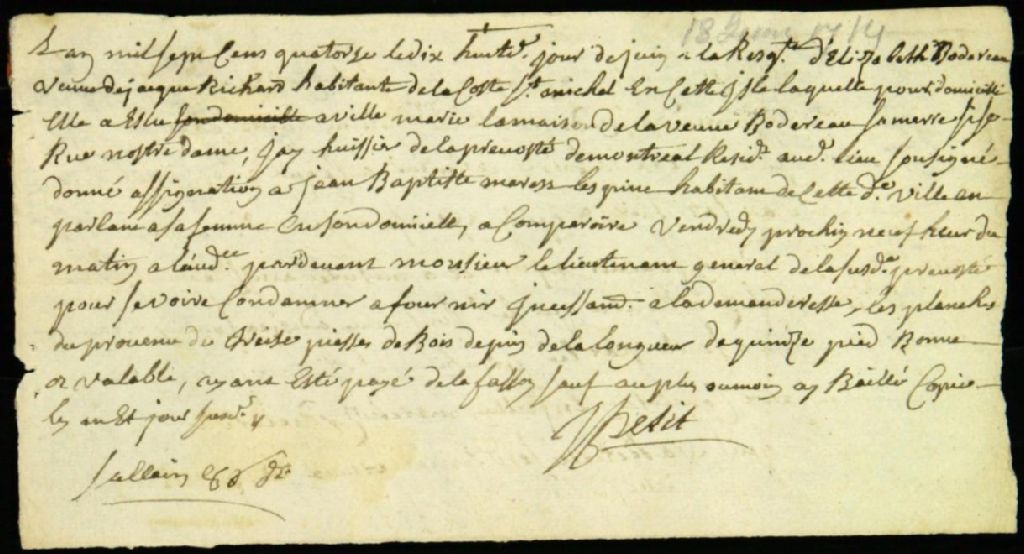 18 Juin 1714
L an mil sept Cens quatorze le dix huite. jour de juin a la Reqte. d'Elizabeth Bodereau
veuve de jacque Richard habitante de la Coste St. michel En Cette Isle laquelle pour domicille
Elle a Eslu son domicille a ville marie la maison de la veuve Bodereau sa mere size
Rue nostre dame, Jay huissier de la prevosté de montreal Residt. audt. lieu soubsigné
donné assignation a jean Baptiste maress lespine habitant de Cette de. ville en
parlant a sa femme En son domicille, a Comparoire Vendredy prochin neuf heur du
matin a laudce. pardevant monsieur le lieutenant general de la susde. prevosté
pour se voire Condamner a fournir Incessamt. a la demanderesse, les planches
du provenu de treize piesses de Bois de pin de la longueur de quinze pied Bonne
et valable, ayant Esté payé de la fasson sauf au plus ou moin ay Baillé Copie
les an Et jour susdt.
JPetit